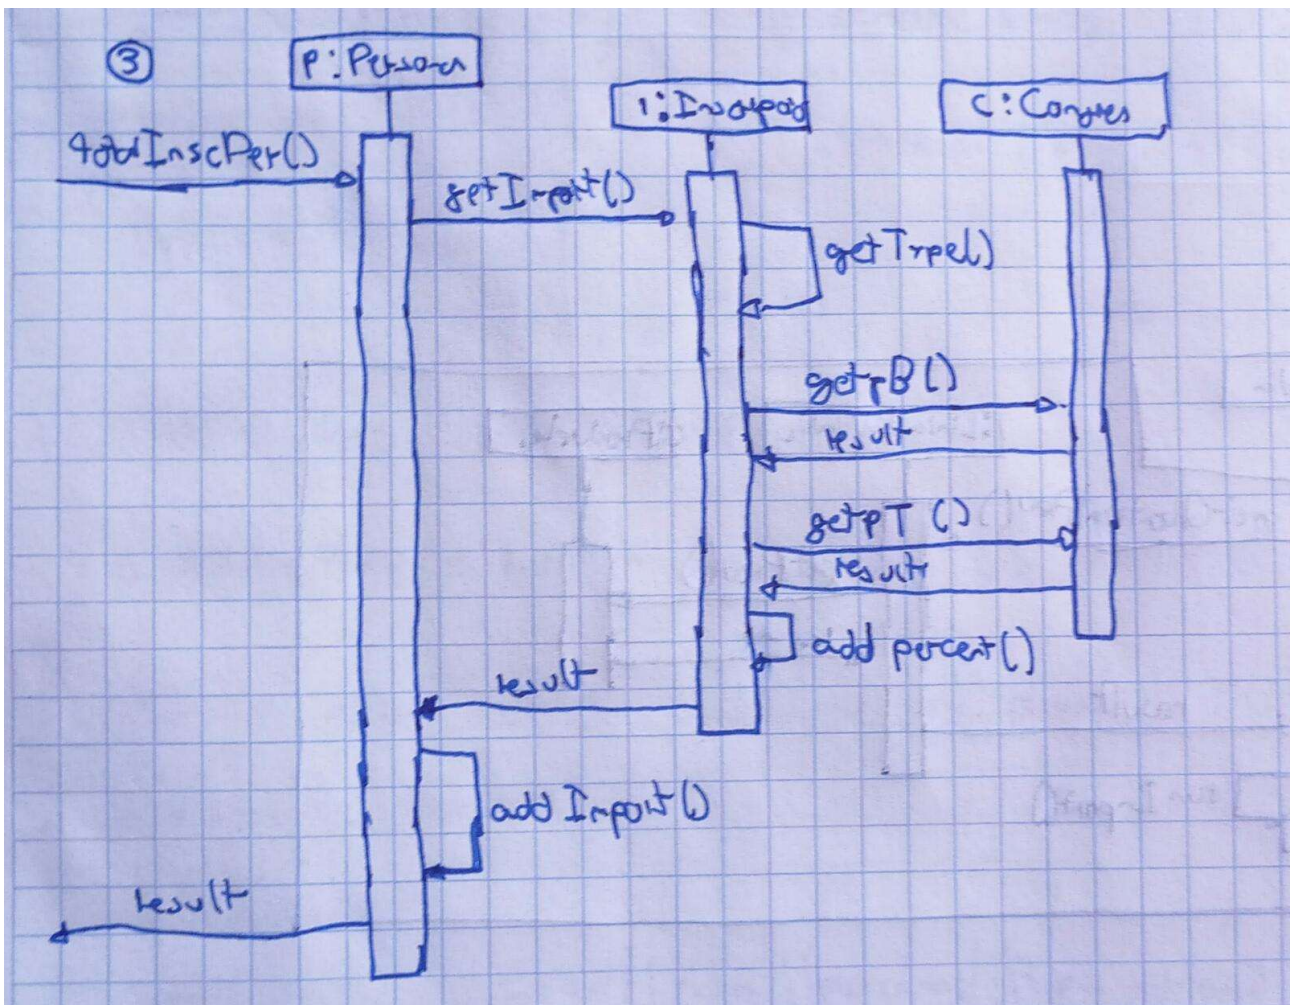 3
p: Persona
i: Inscripció
c: Congres
totalInscPer()
getImport()
getType()
getpB()
result
getpT()
result
add percent()
result
add Import()
result